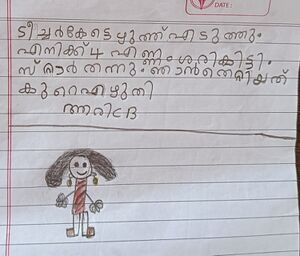 DATE:
ടീച്ചർകേട്ടെഴുത്ത് എടുത്തു.
എനിക്ക് 4 എണ്ണം ശരികിട്ടി.
സ്റ്റാർ തന്നു. ഞാൻ തെറ്റിയത്
കുറെ എഴുതി